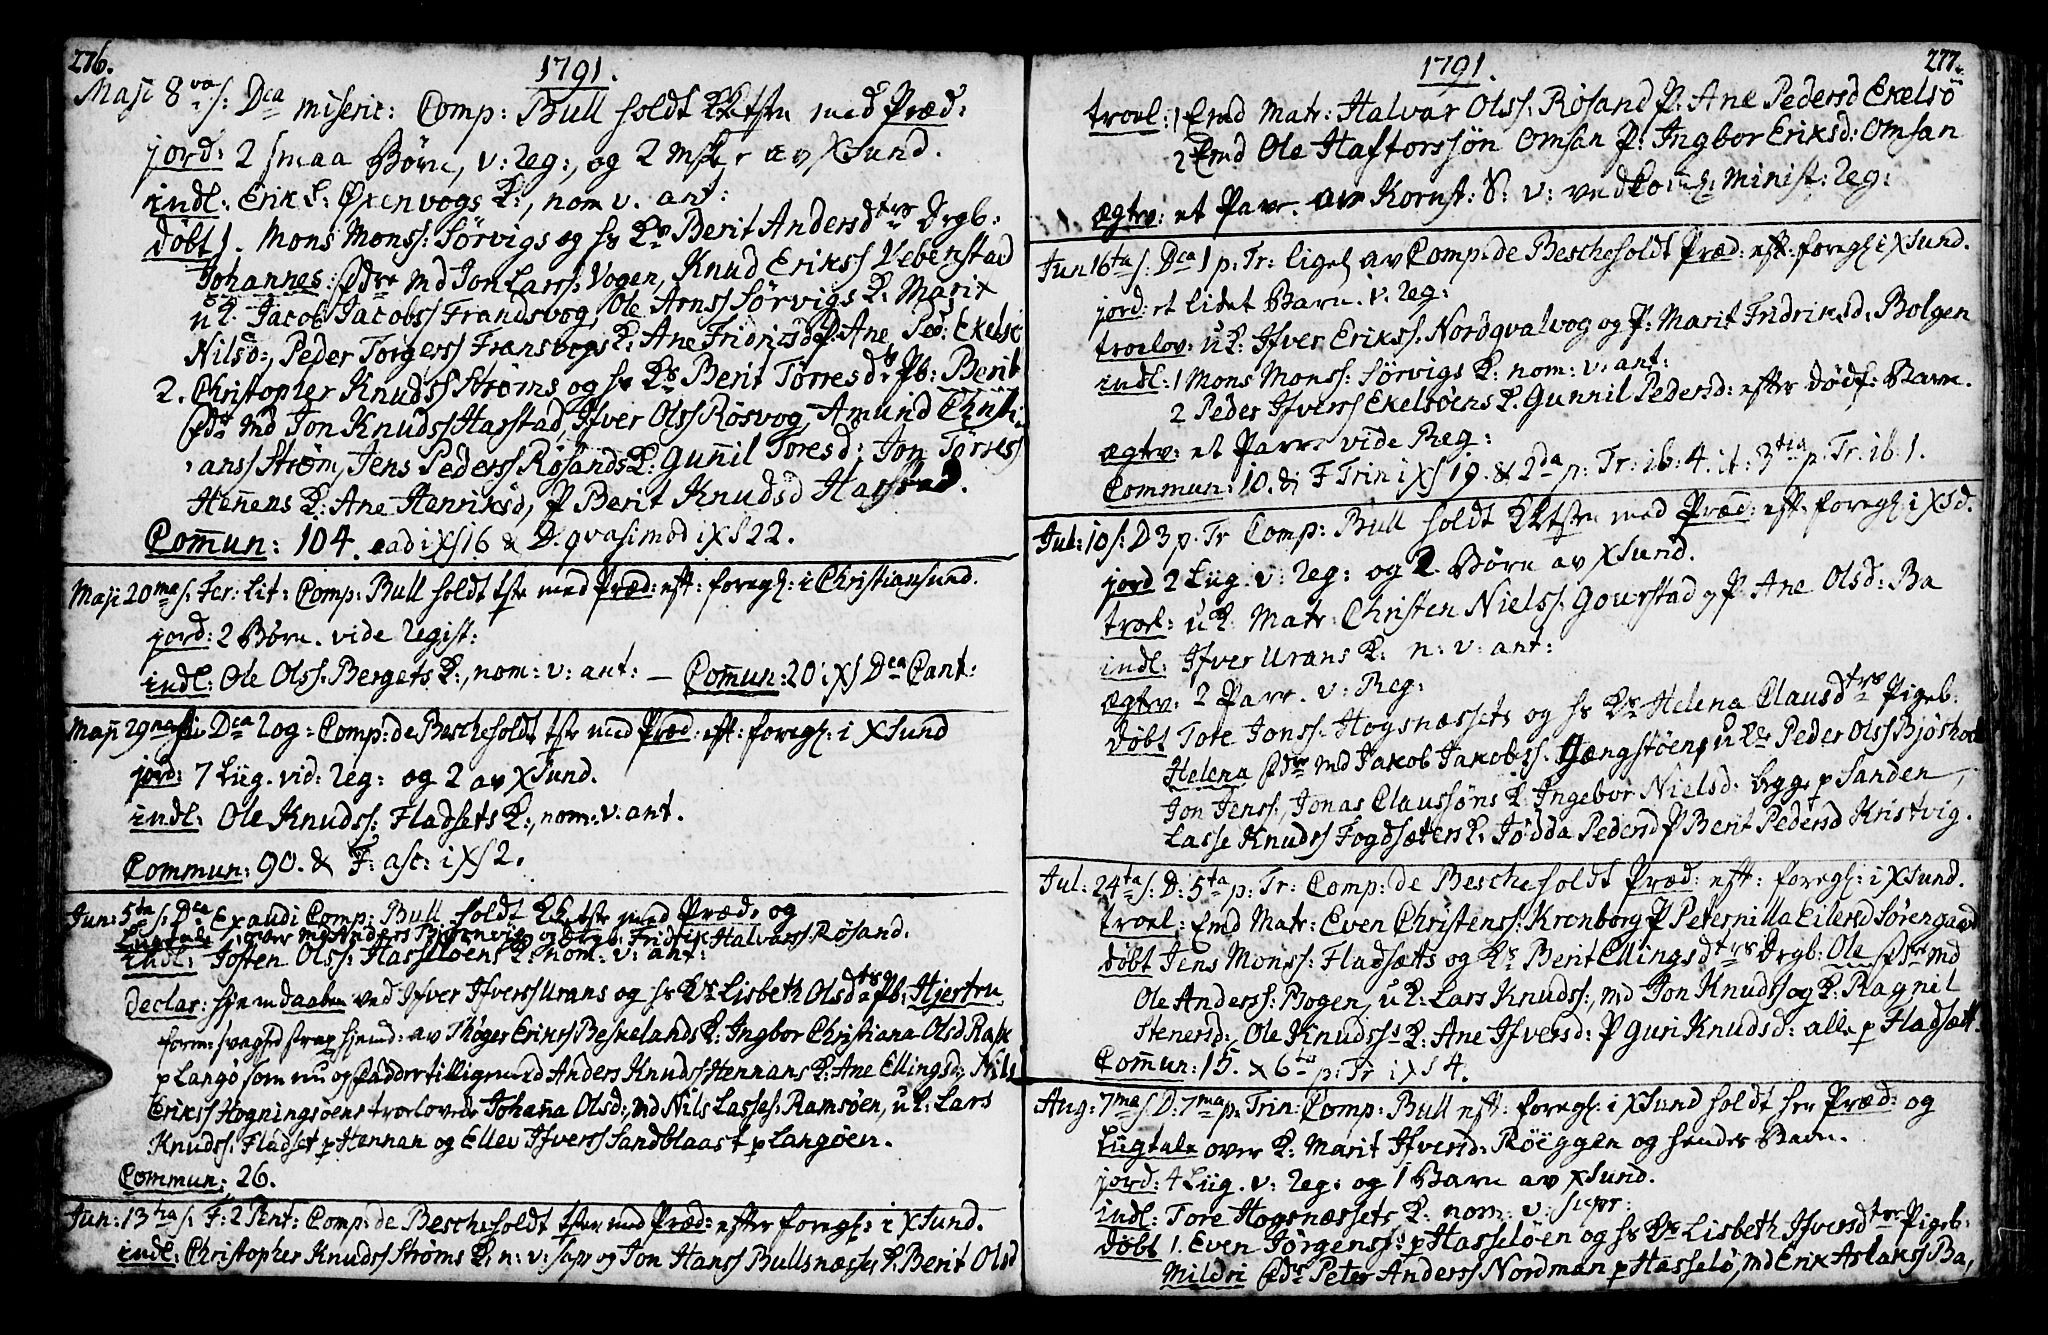 276.
1791.
Maji 8va s: Dca miseric: Comp: Bull holdt KTsten med Præd:
jord: 2 smaa Børn, v: reg:, og 2 av XSund.
indl: Erik Øxenvogs K:, nom v. ant:
døbt 1. Mons Monss: Sörvigs og hs Berit Andersdtrs Drgb:
Johannes: md Jon Larss: Vogen, Knud Erikss Vebenstad
uK: Jacob Jacobss Frandsvog, Ole Arnss Sörvigs K: Marit
Nilsd:, Peder Torgerss Fransvogs K: Ane Fridricsd P: Ane Ped: Ekelsö
2. Christopher Knudss Ströms og hs Berit Torresd Pb: Berit
md Jon Knudss Harstad, Ifver Olss Rösvog, Amund Christi
anss Ström, Jens Pederss Rösands K: Gunnil Toresd: Jon Törress
Hennens K: Ane Henriksd, P Berit Knudsd Harstad.
Commun: 104. ead i XS 16 & D. qvasimod i XS 22.
Maji 20ma s: Fer: Lit: Comp: Bull holdt tste med Præd: eft: foregh: i Christiansund.
jord: 2 Börn. vide regist:
indl: Ole Olss: Bergets K:, nom: v: ant: — Commun: 20 i XS Dca Cant:
Maji 29na s: Dca Rog: Comp: de Besche holdt tste med Præd: eft: foregh: i XSund
jord: 7 Liig. vid: reg: og 2 av XSund.
indl: Ole Knudss: Fladsets K:, nom: v: ant.
Commun: 90. & F: asc: i XS 2.
Jun: 5ta s: Dca Exaudi Comp: Bull holdt KTste med Præd: og
Liigtale over og Drgb: Fridrik Halvarss: Røsand.
indl: Josten Olss: Hasseløens K: nom: v: ant:
Declar: hjemdaaben ved Ifver Iverss Urans og hs Lisbeth Olsdtrs Pb: Hjertru
form: svaghed strax hjemd: av Thöger Erikss Beskelands K: Ingbor Christiana Olsd Rask
p Langö som nu og fadder tilligemed Anders Knudss Hennans K: Ane Ellingsd: Nils
Erikss Hogningsöens troelovede Johanna Olsd: md Nils Lasses: Ramsöen, uK: Lars
Knudss: Fladset p Hennan og Ellev Ifverss Sandblaast p Langøen.
Commun: 26.
Jun: 13tia s: F: 2 Pent: Comp: de Besche holdt tsten med Præd: efter foregh: i XSund.
indl: Christopher Knudss Ströms K: n: v: og Jon Hanss Bullsnæsses K: Berit Olsd
277.
1791.
troel: 1 Emd Matr: Halvar Olss: Røsand P: Ane Pedersd Ekelsö
2 Emd Ole Haftorssön Omsan P: Ingbor Eriksd: Omsan
ægtev: et Parr. av Kornst: S: v: vedkom: Minist: reg:
Jun 16ta s: Dca 1 p: Tr: av Comp: de Besche holdt Præd: eft: foregh: i XSund.
jord: et lidet Barn. v: reg:
troelov: uK: Ifver Erikss: Nordqvalvog og P: Marit Fridriksd: Bolgen
indl: 1 Mons Monss: Sörvigs K: nom: v: ant:
2 Peder Ifverss Ekelsøens K: Gunnil Pedersd: efter dødf: Barn.
ægtev: et Parr: vide Reg:
Commun: 10. & F Trin i XS 19. & 2da p: Tr: ib: 4. it: 3tia p: Tr: ib 1.
Jul: 10 s: D 3 p: Tr Comp: Bull holdt KTsten med Præd: eft: foregh: i XSd.
jord 2 Liig. v: reg: og 2. Börn av XSund.
troel: uK: Matr: Christen Nielss: Gourstad og P: Ane Olsd: Ba
indl: Ifver Urans K: n: v: ant:
ægtev: 2 Parr. v: Reg:
døbt Tore Jonss: Hogsnæssets og hs Helena Clausdtrs Pigeb:
Helena md Jakob Jakobss: Hængstöen, uK: Peder Olss Bjösholt
Jon Jenss:, Jonas Claussöns K: Ingebor Nielsd: begge p Sanden,
Lasse Knudss Fogdsæters K: Jödda Pedersd P Berit Pedersd Kristvig.
Jul: 24ta s: D: 5ta p: Tr: Comp: de Besche holdt Præd: eft: foregh: i XSund.
troel: Emd Matr: Even Christens: Kronborg P Peternilla Eilersd Sörengaard
døbt Jens Monss: Fladsætts og Berit Ellingsdtrs Drgb: Ole md
Ole Anderss: Bogen, uK: Lars Knudss:, md Jon Knudss og K: Ragnil
Stenersd:, Ole Knudss K: Ane Ifversd: P Guri Knudsd: alle p Fladsætt.
Commun: 15. & 6ta p: Tr i XS 4.
Aug: 7ma s: D: 7ma p: Trin: Comp: Bull eft: foregh: i XSund holdt her Præd: og
Liigtale over K: Marit Ifversd: Röeggen og hendes Barn.
jord: 4 Liig. v: reg: og 1 Barn av XSund.
indl: Tore Hogsnæssets K: nom: v:
döbt 1. Even Jörgenss: p Hasselöen og hs Lisbeth Ifversdtrs Pigeb:
Mildri Peter Anderss Nordman p Hasselö, md Erik Aslakss Ba,